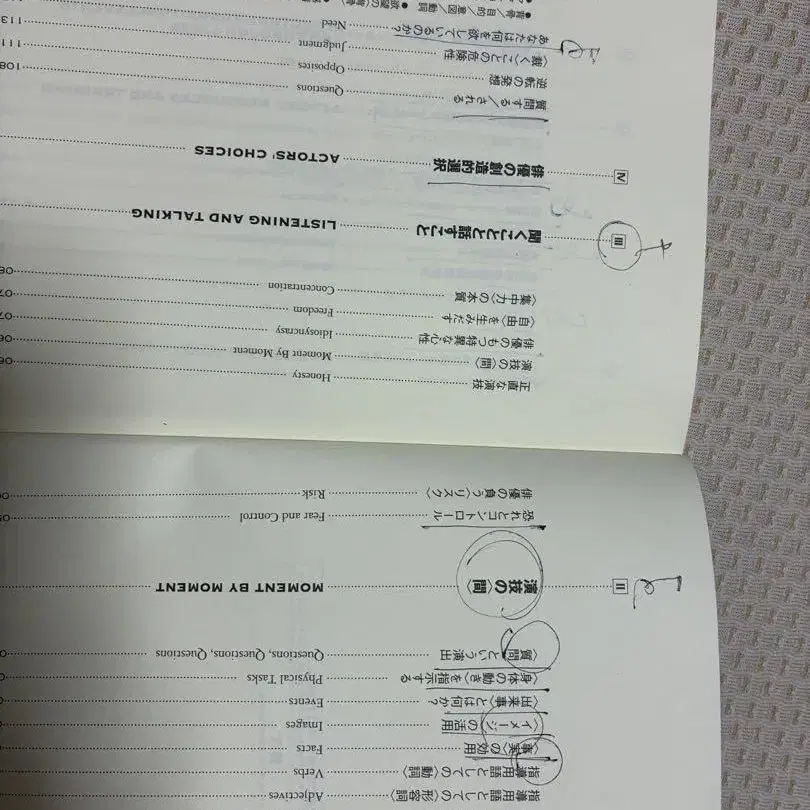 指導用語としての〈形容詞〉 Adjectives
指導用語としての〈動詞〉 Verbs
〈事実〉の効用 Facts
〈イメージ〉の活用 Images
〈出来事〉とは何か? Events
〈身体の動き〉を指示する Physical Tasks
〈質問〉という演出 Questions, Questions, Questions
II 演技の〈間〉 MOMENT BY MOMENT
恐れとコントロール Fear and Control
俳優の負う〈リスク〉 Risk
正直な演技 Honesty
演技の〈間〉 Moment By Moment
俳優のもつ特異な心性 Idiosyncrasy
〈自由〉を生みだす Freedom
〈集中力〉の本質 Concentration
III 聞くことと話すこと LISTENING AND TALKING
IV 俳優の創造的選択 ACTORS' CHOICES
質問する/される Questions 108
逆転の発想 Opposites 111
〈裁く〉ことの危険性 Judgment 113
あなたは何を欲しているのか? Need
●背骨/目的/意図/動詞